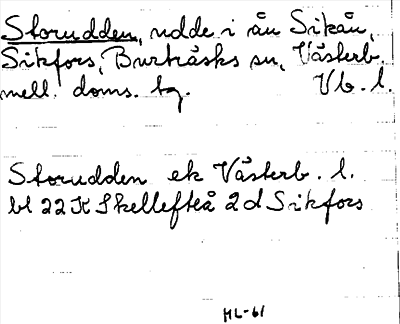 Storudden, udde i ån Sikån,
Sikfors, Burträsks sn, Västerb.
mell. doms. tg. Vb. l.
Storudden ek Västerb. l.
bl 22 K Skellefteå 2d Sikfors
HL-61